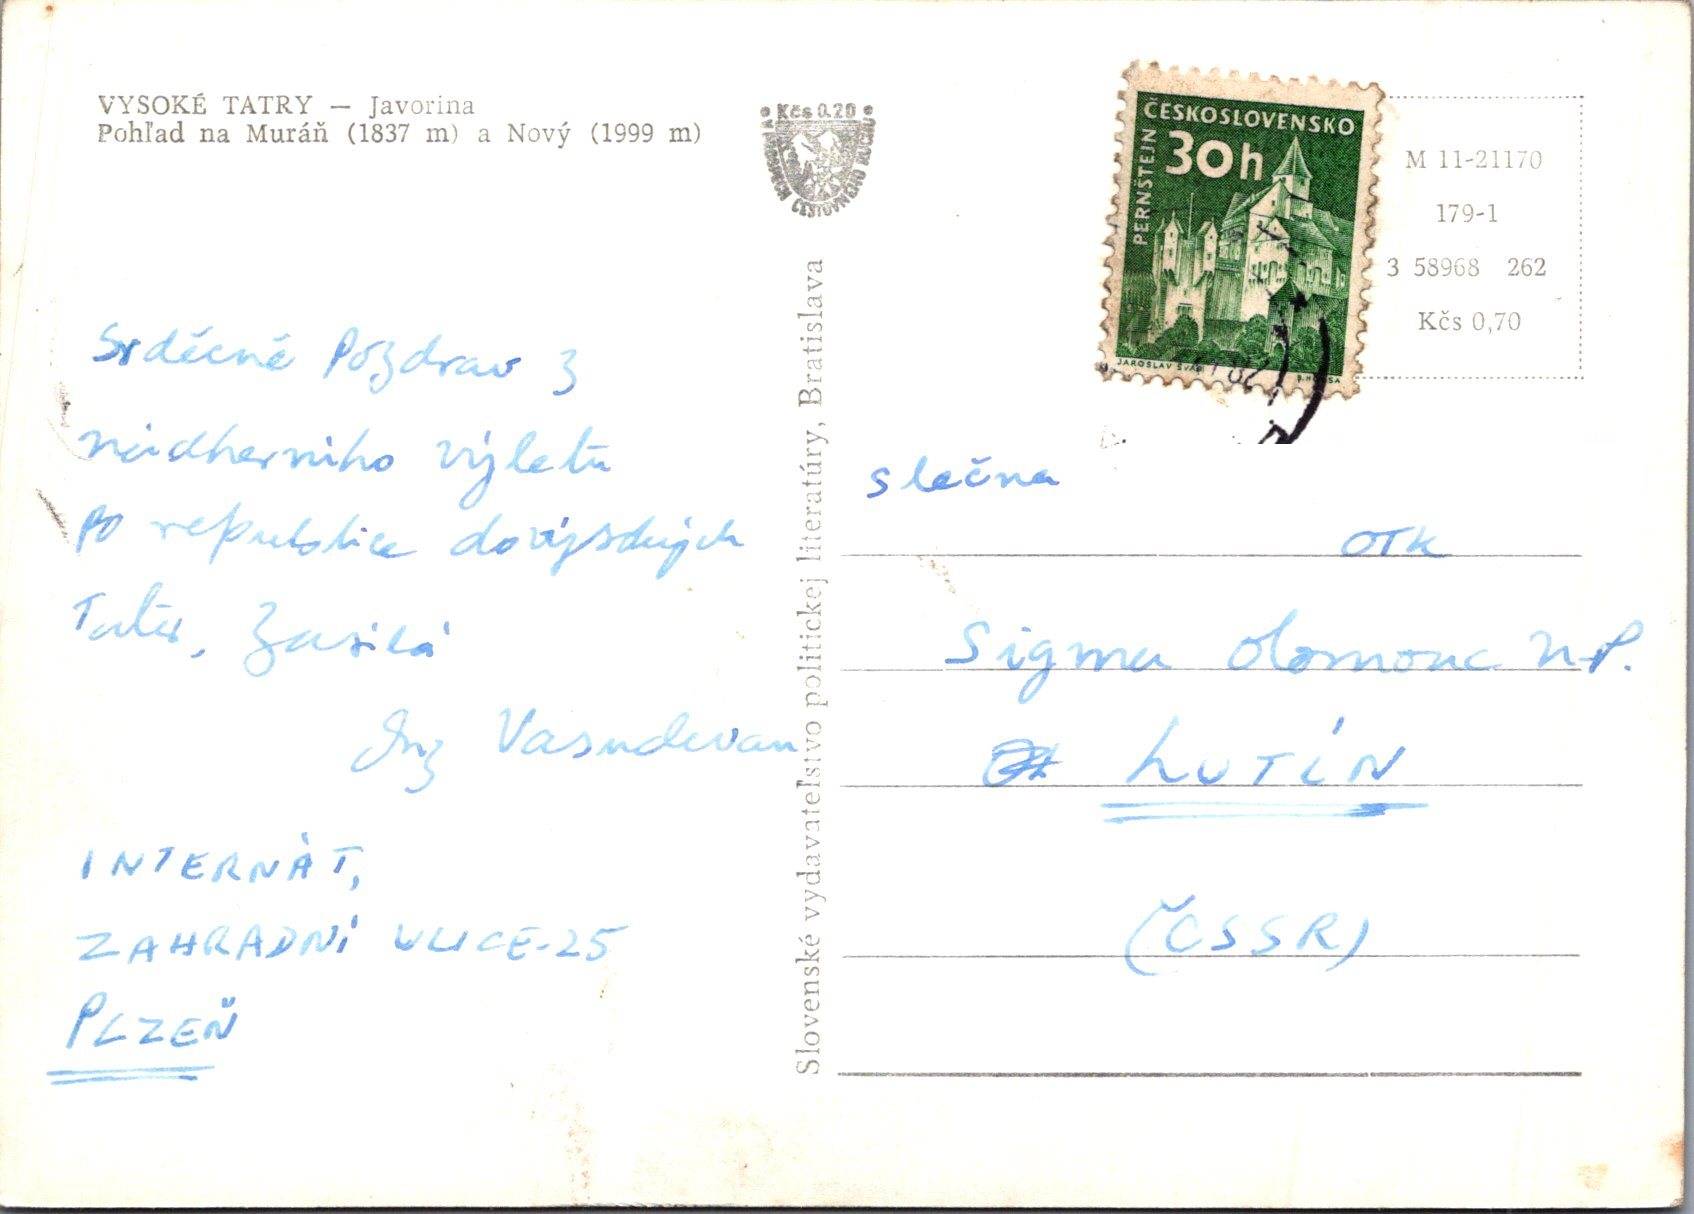 VYSOKÉ TATRY — Javorina
Pohľad na Muráň (1837 m) a Nový (1999 m)
Kčs 0.20
ČESKOSLOVENSKO
30h
PERNŠTEJN
JAROSLAV ŠVÁB
M 11-21170
179-1
3 58968 262
Kčs 0,70
Slovenské vydavateľstvo politickej literatúry, Bratislava
Srděčně Pozdrav z
nádherního výletu
po republice do výsokých
Tater, Zasílá
Ing Vasudevan
INTERNÁT,
ZAHRADNÍ ULICE-25
PLZEŇ
slečna
OTK
Sigma Olomouc N.P.
LUTÍN
(ČSSR)